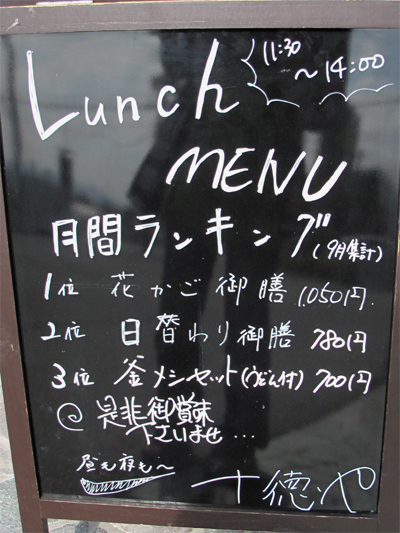 Lunch 11:30
～14:00
MENU
月間ランキング(9月集計)
1位 花かご御膳 1,050円
2位 日替わり御膳 780円
3位 釜メシセット(うどん付) 700円
◎是非御賞味
下さいませ…
昼も夜も～
十徳や